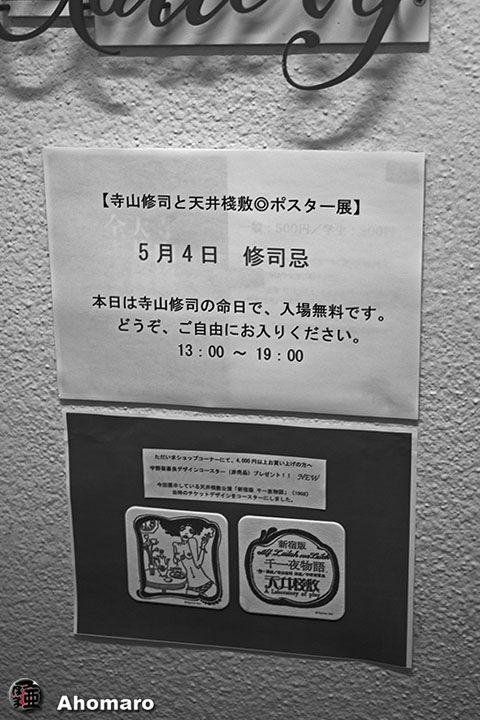 【寺山修司と天井棧敷◎ポスター展】
一般：500円／学生：300円
5月4日　修司忌
本日は寺山修司の命日で、入場無料です。
どうぞ、ご自由にお入りください。
13：00 ～ 19：00
ただいまショップコーナーにて、4,000円以上お買い上げの方へ
宇野亜喜良デザインコースター（非売品）プレゼント！！ NEW
今回展示している天井棧敷公演「新宿版 千一夜物語」（1968）
当時のチケットデザインをコースターにしました。
新宿版
Alf Laylah wa Laylah
千一夜物語
天井棧敷
A Laboratory of play
Ahomaro